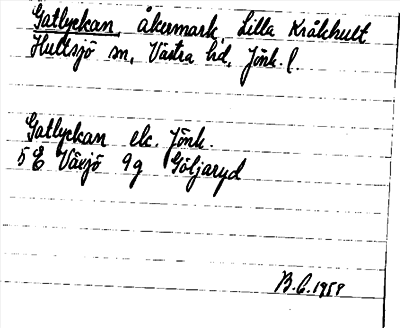 Gatlyckan, åkermark, Lilla Kråkhult
Hultsjö sn, Västra hd, Jönk. l.
Gatlyckan ek. Jönk.
5 E Växjö 9g Göljaryd
B.C. 1959